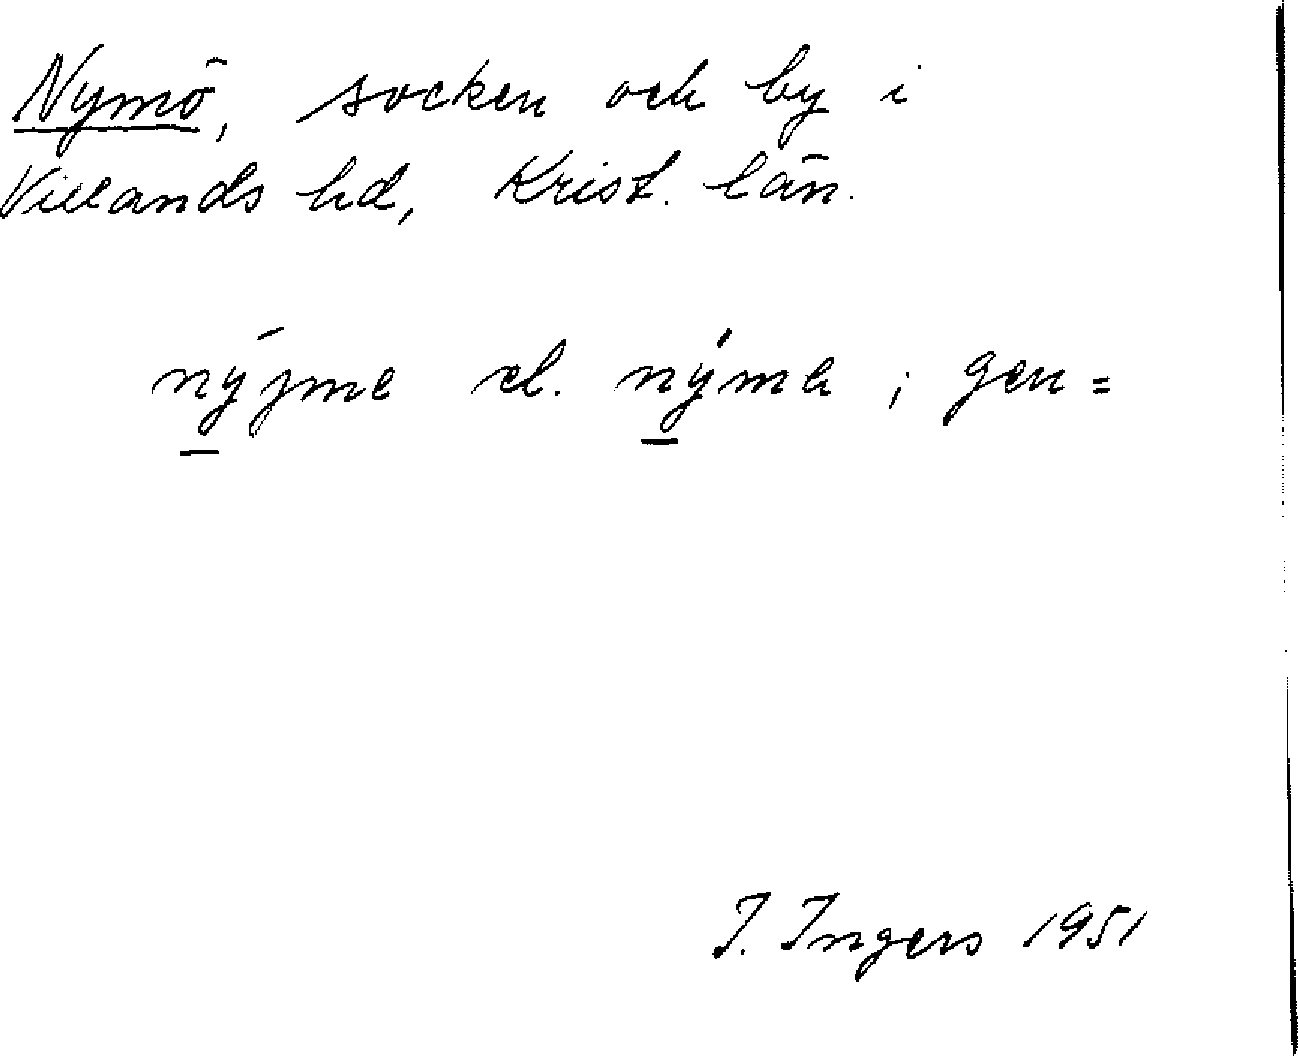 Nymö, socken och by i
Villands hd, Krist. län.
ný̱jme el. ný̱ma ; gen =
I. Ingers 1951